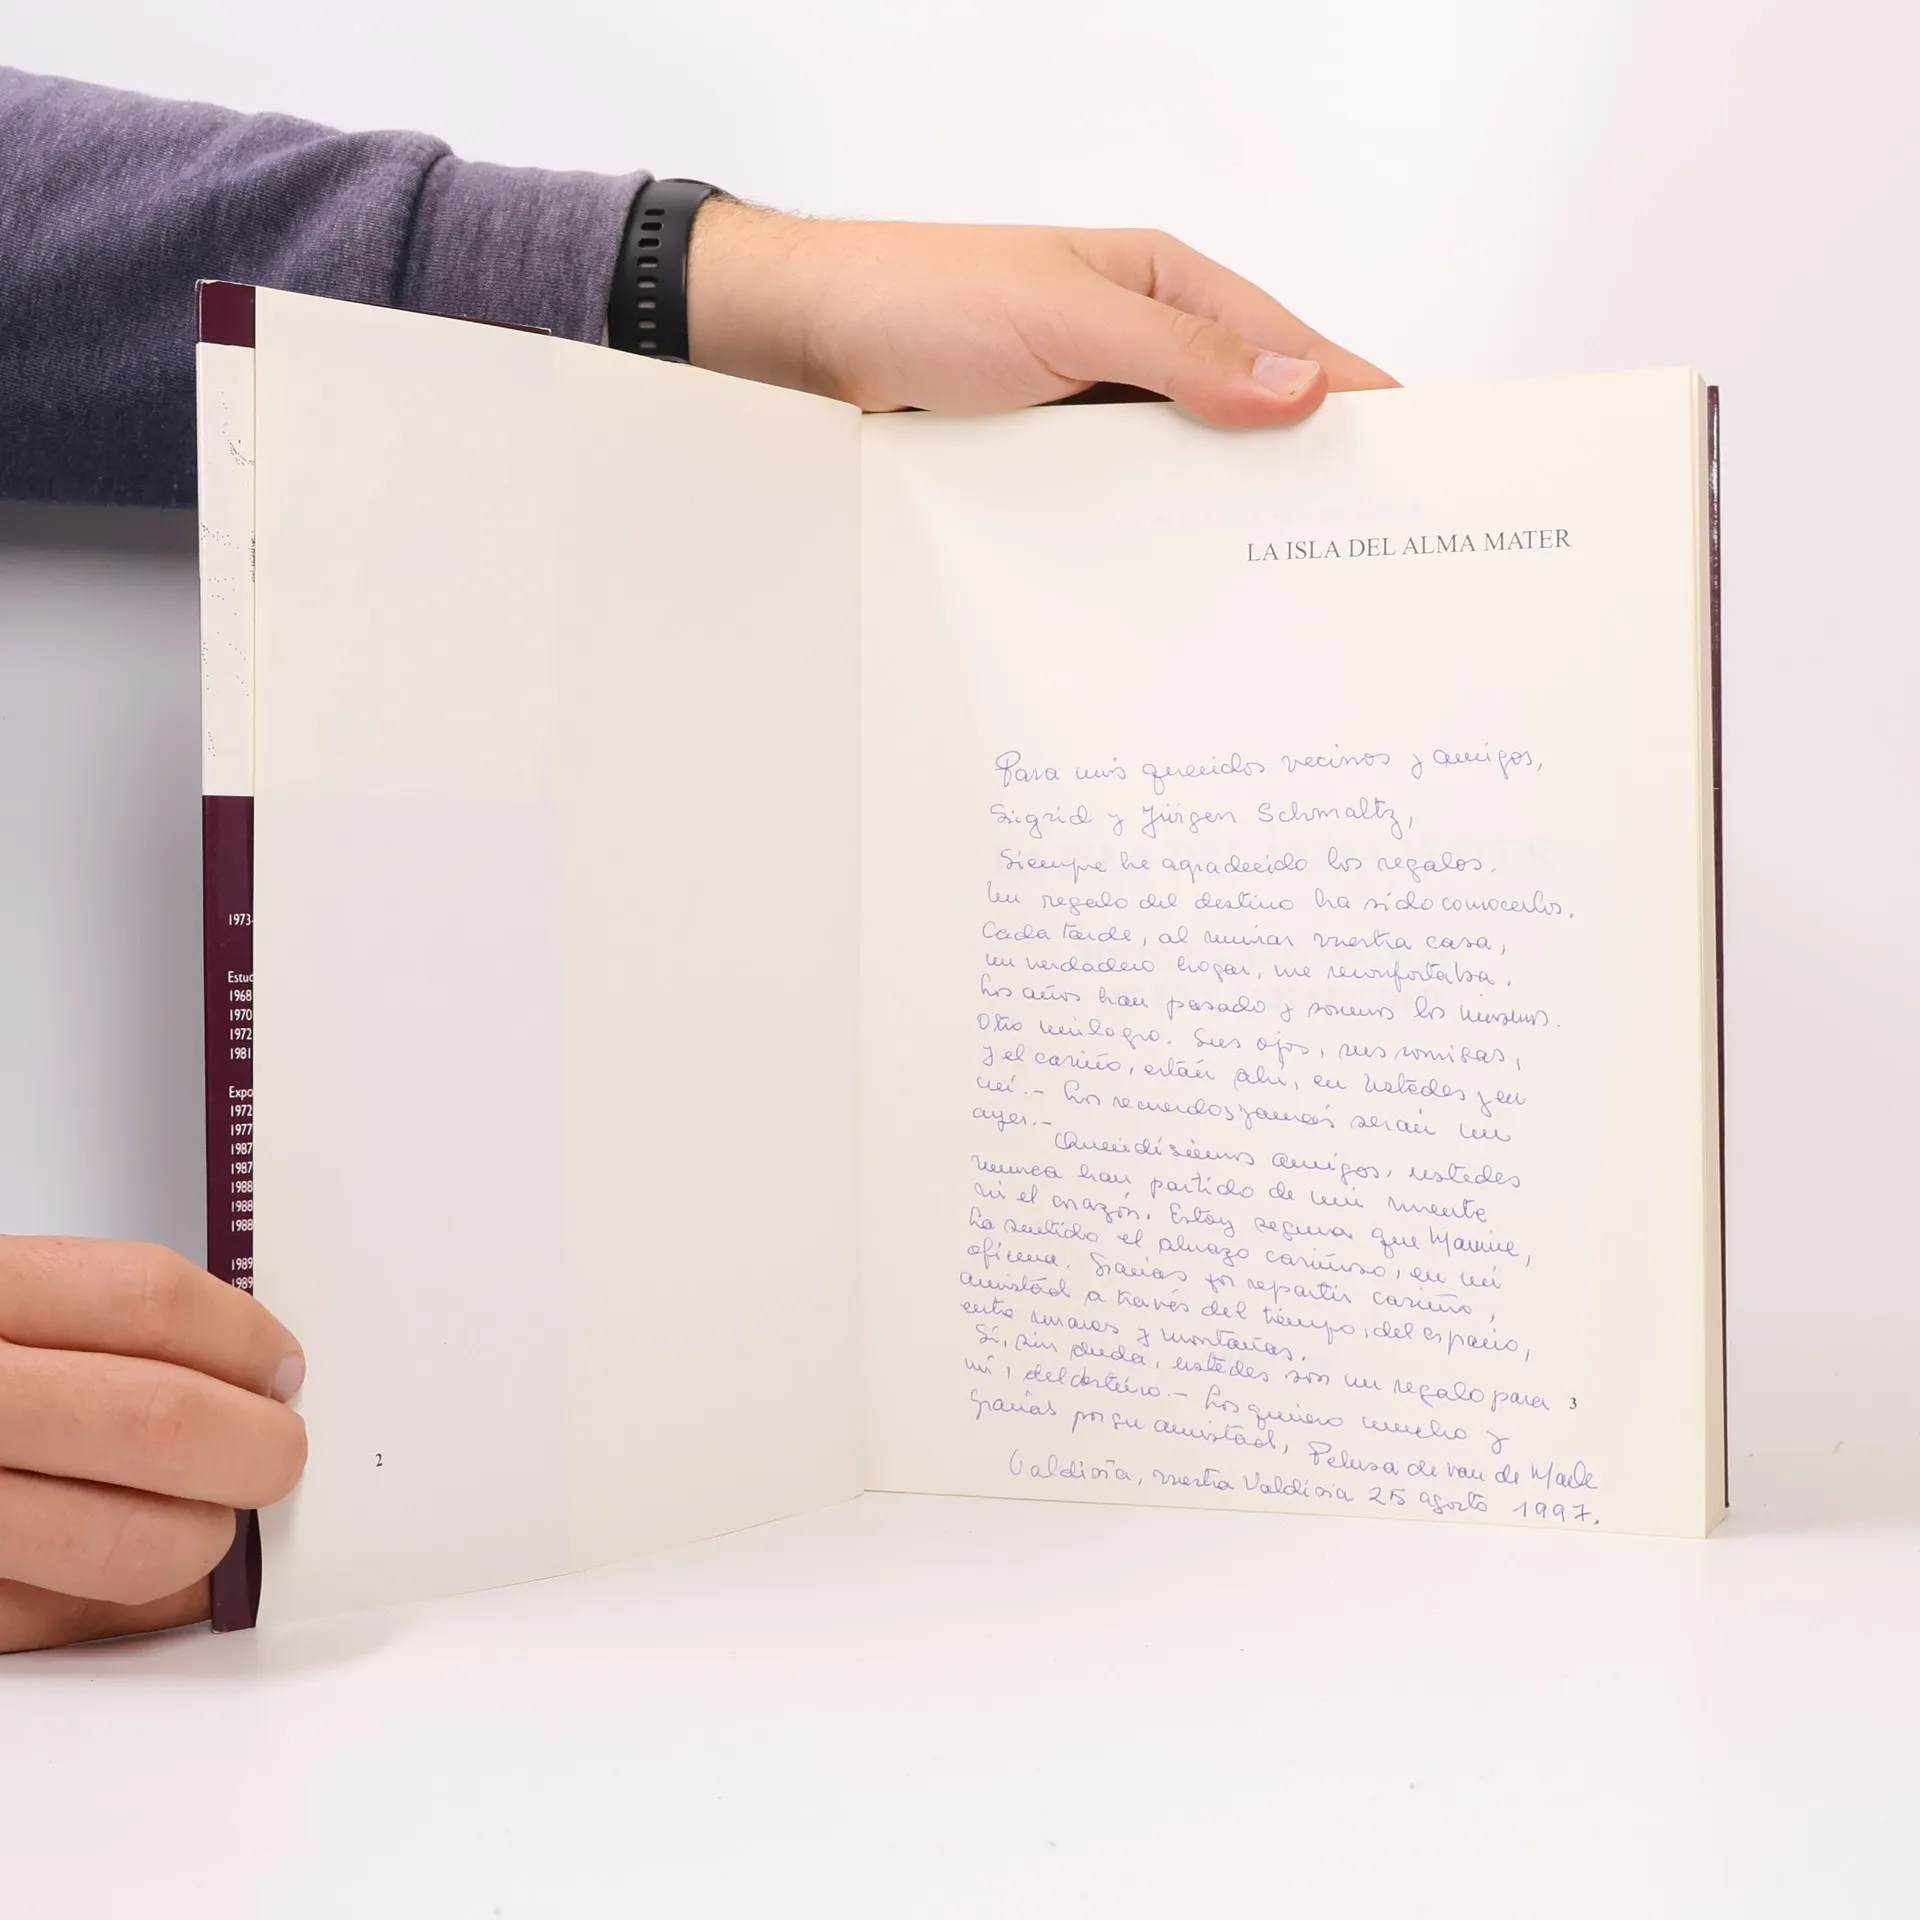 1973-
Estud
1968
1970
1972
1981
Expo
1972
1977
1987
1987
1988
1988
1988
1989
1989
2
LA ISLA DEL ALMA MATER
Para mis queridos vecinos y amigos,
Sigrid y Jürgen Schmaltz,
Siempre he agradecido los regalos.
Un regalo del destino ha sido conocerlos.
Cada tarde, al mirar vuestra casa,
un verdadero hogar, me reconfortaba.
Los años han pasado y somos los mismos.
Otro milagro. Sus ojos, sus sonrisas,
y el cariño, están ahí, en Ustedes y en
mí.- Los recuerdos jamás serán un
ayer.-
Queridísimos amigos, ustedes
nunca han partido de mi mente
ni el corazón. Estoy segura que
ha sentido el abrazo cariñoso, en mi
oficina. Gracias por repartir cariño,
amistad a través del tiempo, del espacio,
entre mares y montañas.
Sí, sin duda, ustedes son un regalo para
mí, del destino.- Los quiero mucho y
gracias por su amistad, Pelusa de van de Maele
Valdivia, nuestra Valdivia 25 agosto 1997.
3